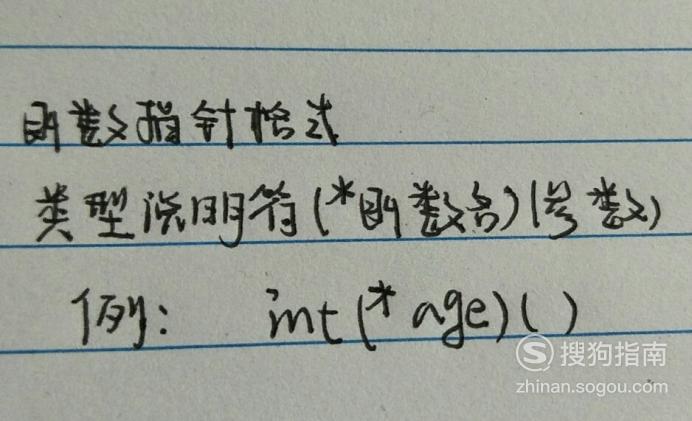 函数指针格式
类型说明符(*函数名)(参数)
例: int(*age)()
搜狗指南
zhinan.sogou.com